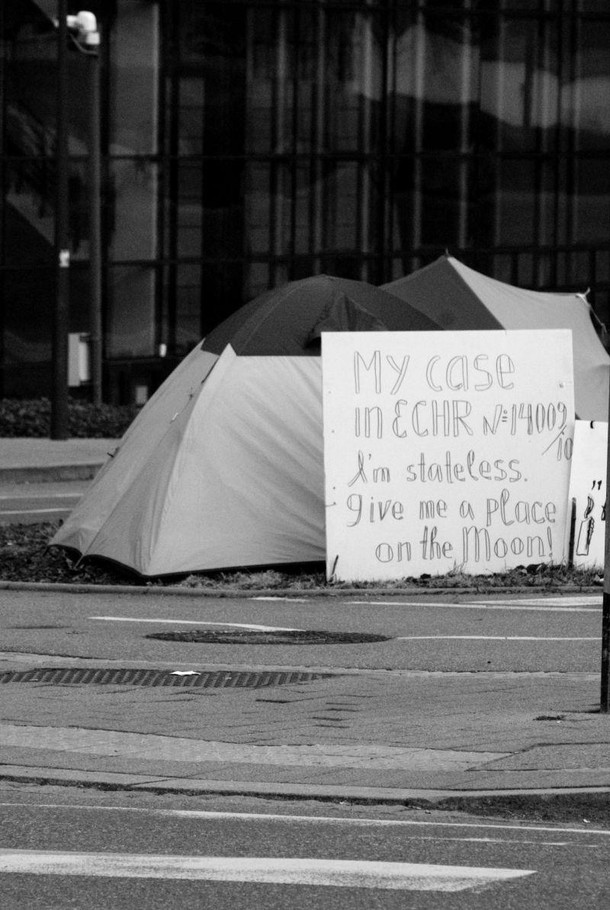 My case
in ECHR №14009
/10
I'm stateless.
give me a place
on the Moon!